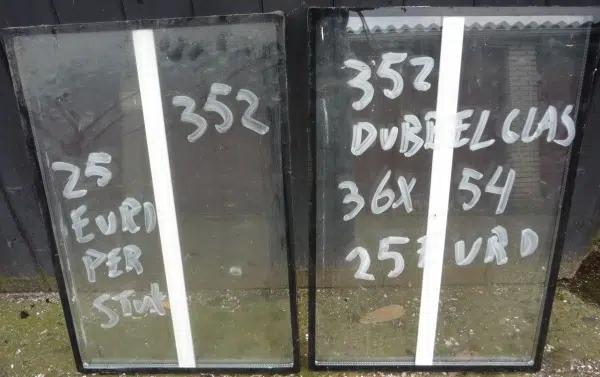 352
25
EURO
PER
STUK
352
DUBBELGLAS
36X 54
25 EURO